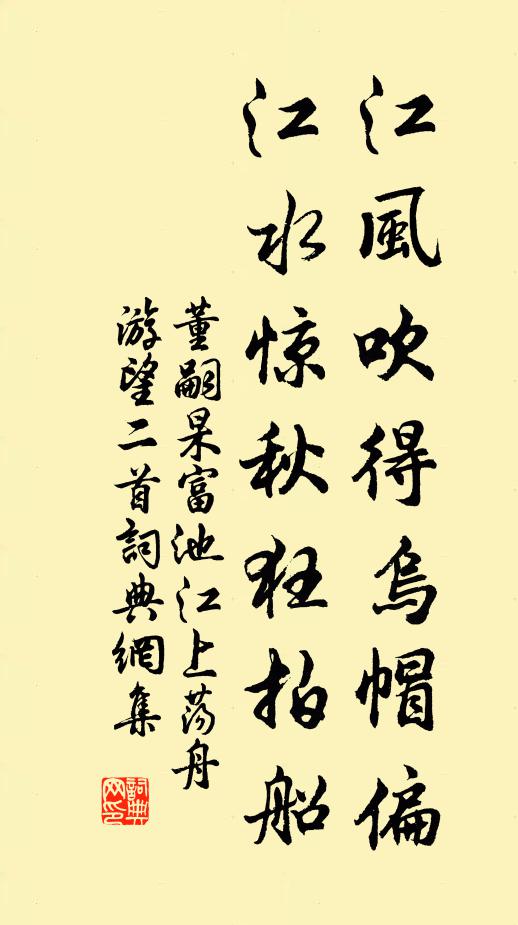 江風吹得烏帽偏
江水惊秋狂拍船
董嗣杲富池江上荡舟
游望二首詞典網集
詞典
网印